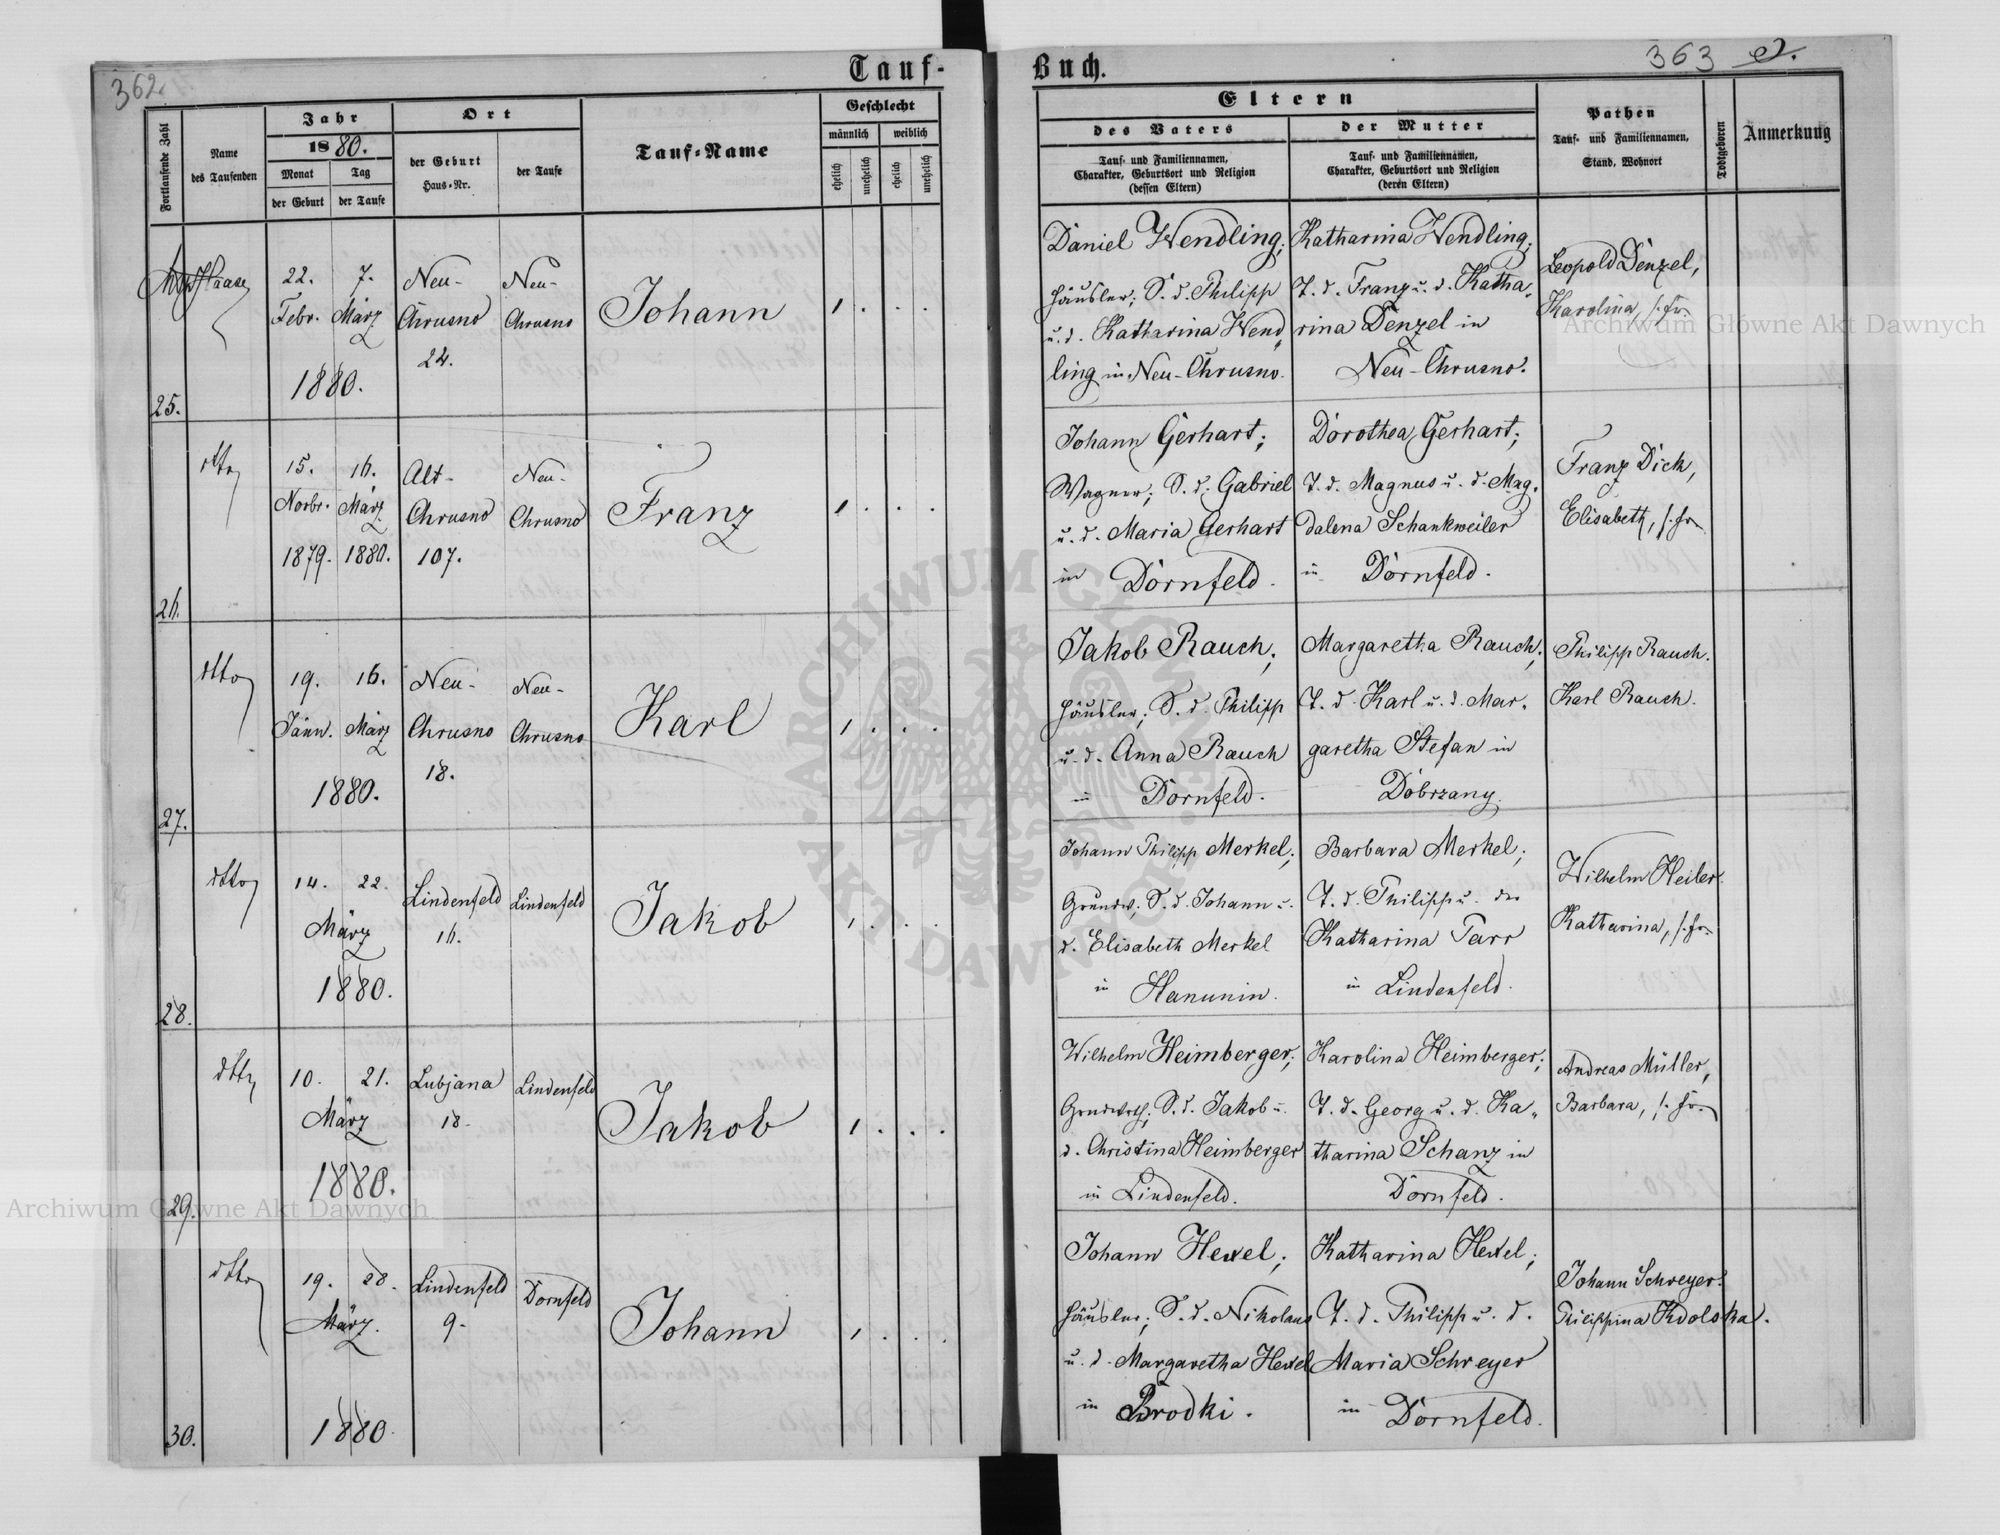 362.
363
Tauf-
Buch.
Fortlaufende Zahl
Name
des Taufenden
Jahr
1880.
Monat
Tag
der Geburt
der Taufe
Ort
der Geburt
Haus-Nr.
der Taufe
Tauf-Name
Geschlecht
männlich
weiblich
ehelich
unehelich
ehelich
unehelich
Eltern
des Vaters
Tauf- und Familiennamen,
Charakter, Geburtsort und Religion
(dessen Eltern)
der Mutter
Tauf- und Familiennamen,
Charakter, Geburtsort und Religion
(deren Eltern)
Pathen
Tauf- und Familiennamen,
Stand, Wohnort
Todtgeboren
Anmerkung
25.
Haase
22. 7.
Febr. März
1880.
Neu-
Chrusno
24.
Neu-
Chrusno
Johann
1 . . .
Daniel Wendling;
Häusler; S. d. Philipp
u. d. Katharina Wend„
ling in Neu-Chrusno.
Katharina Wendling;
T. d. Franz u. d. Katha„
rina Denzel in
Neu-Chrusno.
Leopold Denzel,
Karolina, s. Fr.
26.
dtto
15. 16.
Novbr. März
1879. 1880.
Alt-
Chrusno
107.
Neu-
Chrusno
Franz
1 . . .
Johann Gerhart;
Wagner; S. d. Gabriel
u. d. Maria Gerhart
in Dornfeld.
Dorothea Gerhart;
T. d. Magnus u. d. Mag„
dalena Schankweiler
in Dornfeld.
Franz Dick,
Elisabeth, s. Fr.
27.
dtto
19. 16.
Jänn. März
1880.
Neu-
Chrusno
18.
Neu-
Chrusno
Karl
1 . . .
Jakob Rauch;
Häusler; S. d. Philipp
u. d. Anna Rauch
in Dornfeld.
Margaretha Rauch;
T. d. Karl u. d. Mar„
garetha Stefan in
Dobrzany.
Philipp Rauch.
Karl Rauch.
28.
dtto
14. 22.
März
1880.
Lindenfeld
16.
Lindenfeld
Jakob
1 . . .
Johann Philipp Merkel;
Grundw; S. d. Johann u.
d. Elisabeth Merkel
in Hanunin.
Barbara Merkel;
T. d. Philipp u. der
Katharina Parr
in Lindenfeld.
Wilhelm Heiler.
Katharina, s. Fr.
29.
dtto
10. 21.
März
1880.
Lubjana
18.
Lindenfeld
Jakob
1 . . .
Wilhelm Heimberger;
Grndwrth; S. d. Jakob u.
d. Christina Heimberger
in Lindenfeld.
Karolina Heimberger;
T. d. Georg u. d. Ka„
tharina Schanz in
Dornfeld.
Andreas Müller,
Barbara, s. Fr.
30.
dtto
19. 28.
März.
1880.
Lindenfeld
9.
Dornfeld
Johann
1 . . .
Johann Hexel;
Häusler; S. d. Nikolaus
u. d. Margaretha Hexel
in Brodki.
Katharina Hexel;
T. d. Philipp u. d.
Maria Schreyer
in Dornfeld.
Johann Schreyer.
Philippina Kdolska.
Archiwum Główne Akt Dawnych
Archiwum Główne Akt Dawnych
ARCHIWUM GŁÓWNE AKT DAWNYCH